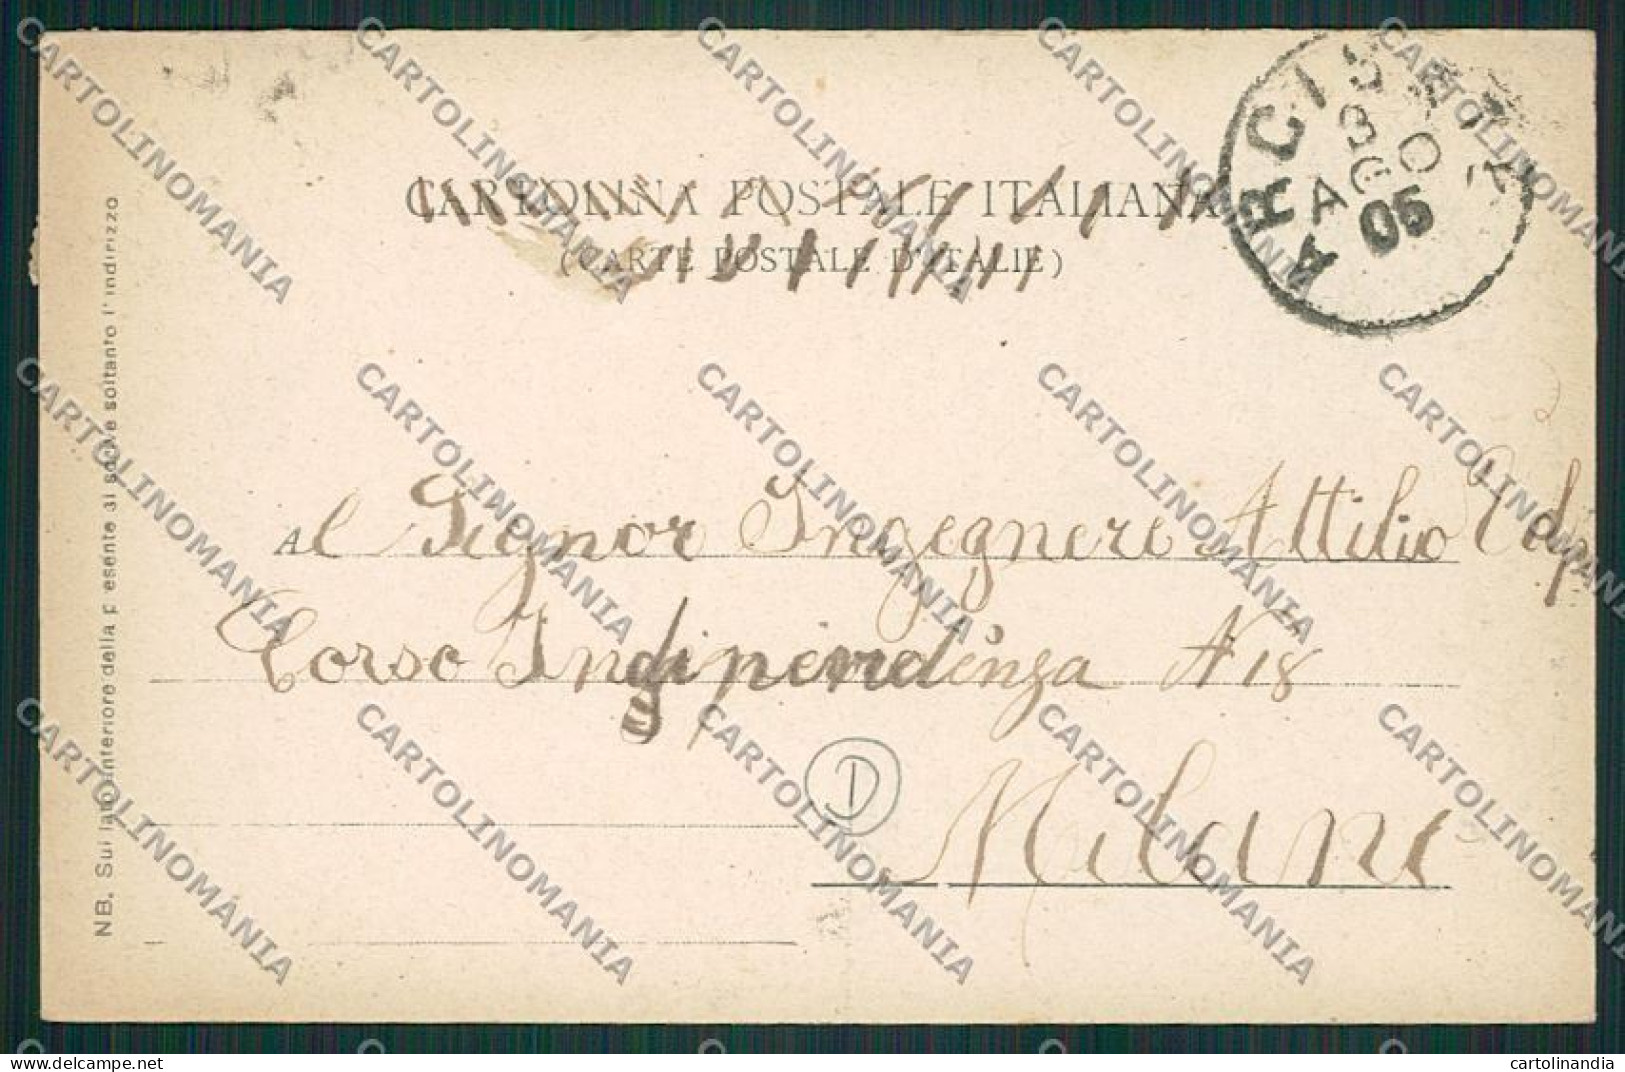 CARTOLINA POSTALE ITALIANA
(CARTE POSTALE D'ITALIE)
30
AG
05
Al Signor Ingegnere Attilio
Corso Indipendenza N 18
D
Milano
NB. Sul lato interiore della presente si scrive soltanto l'indirizzo
CARTOLINOMANIA
cartolinandia